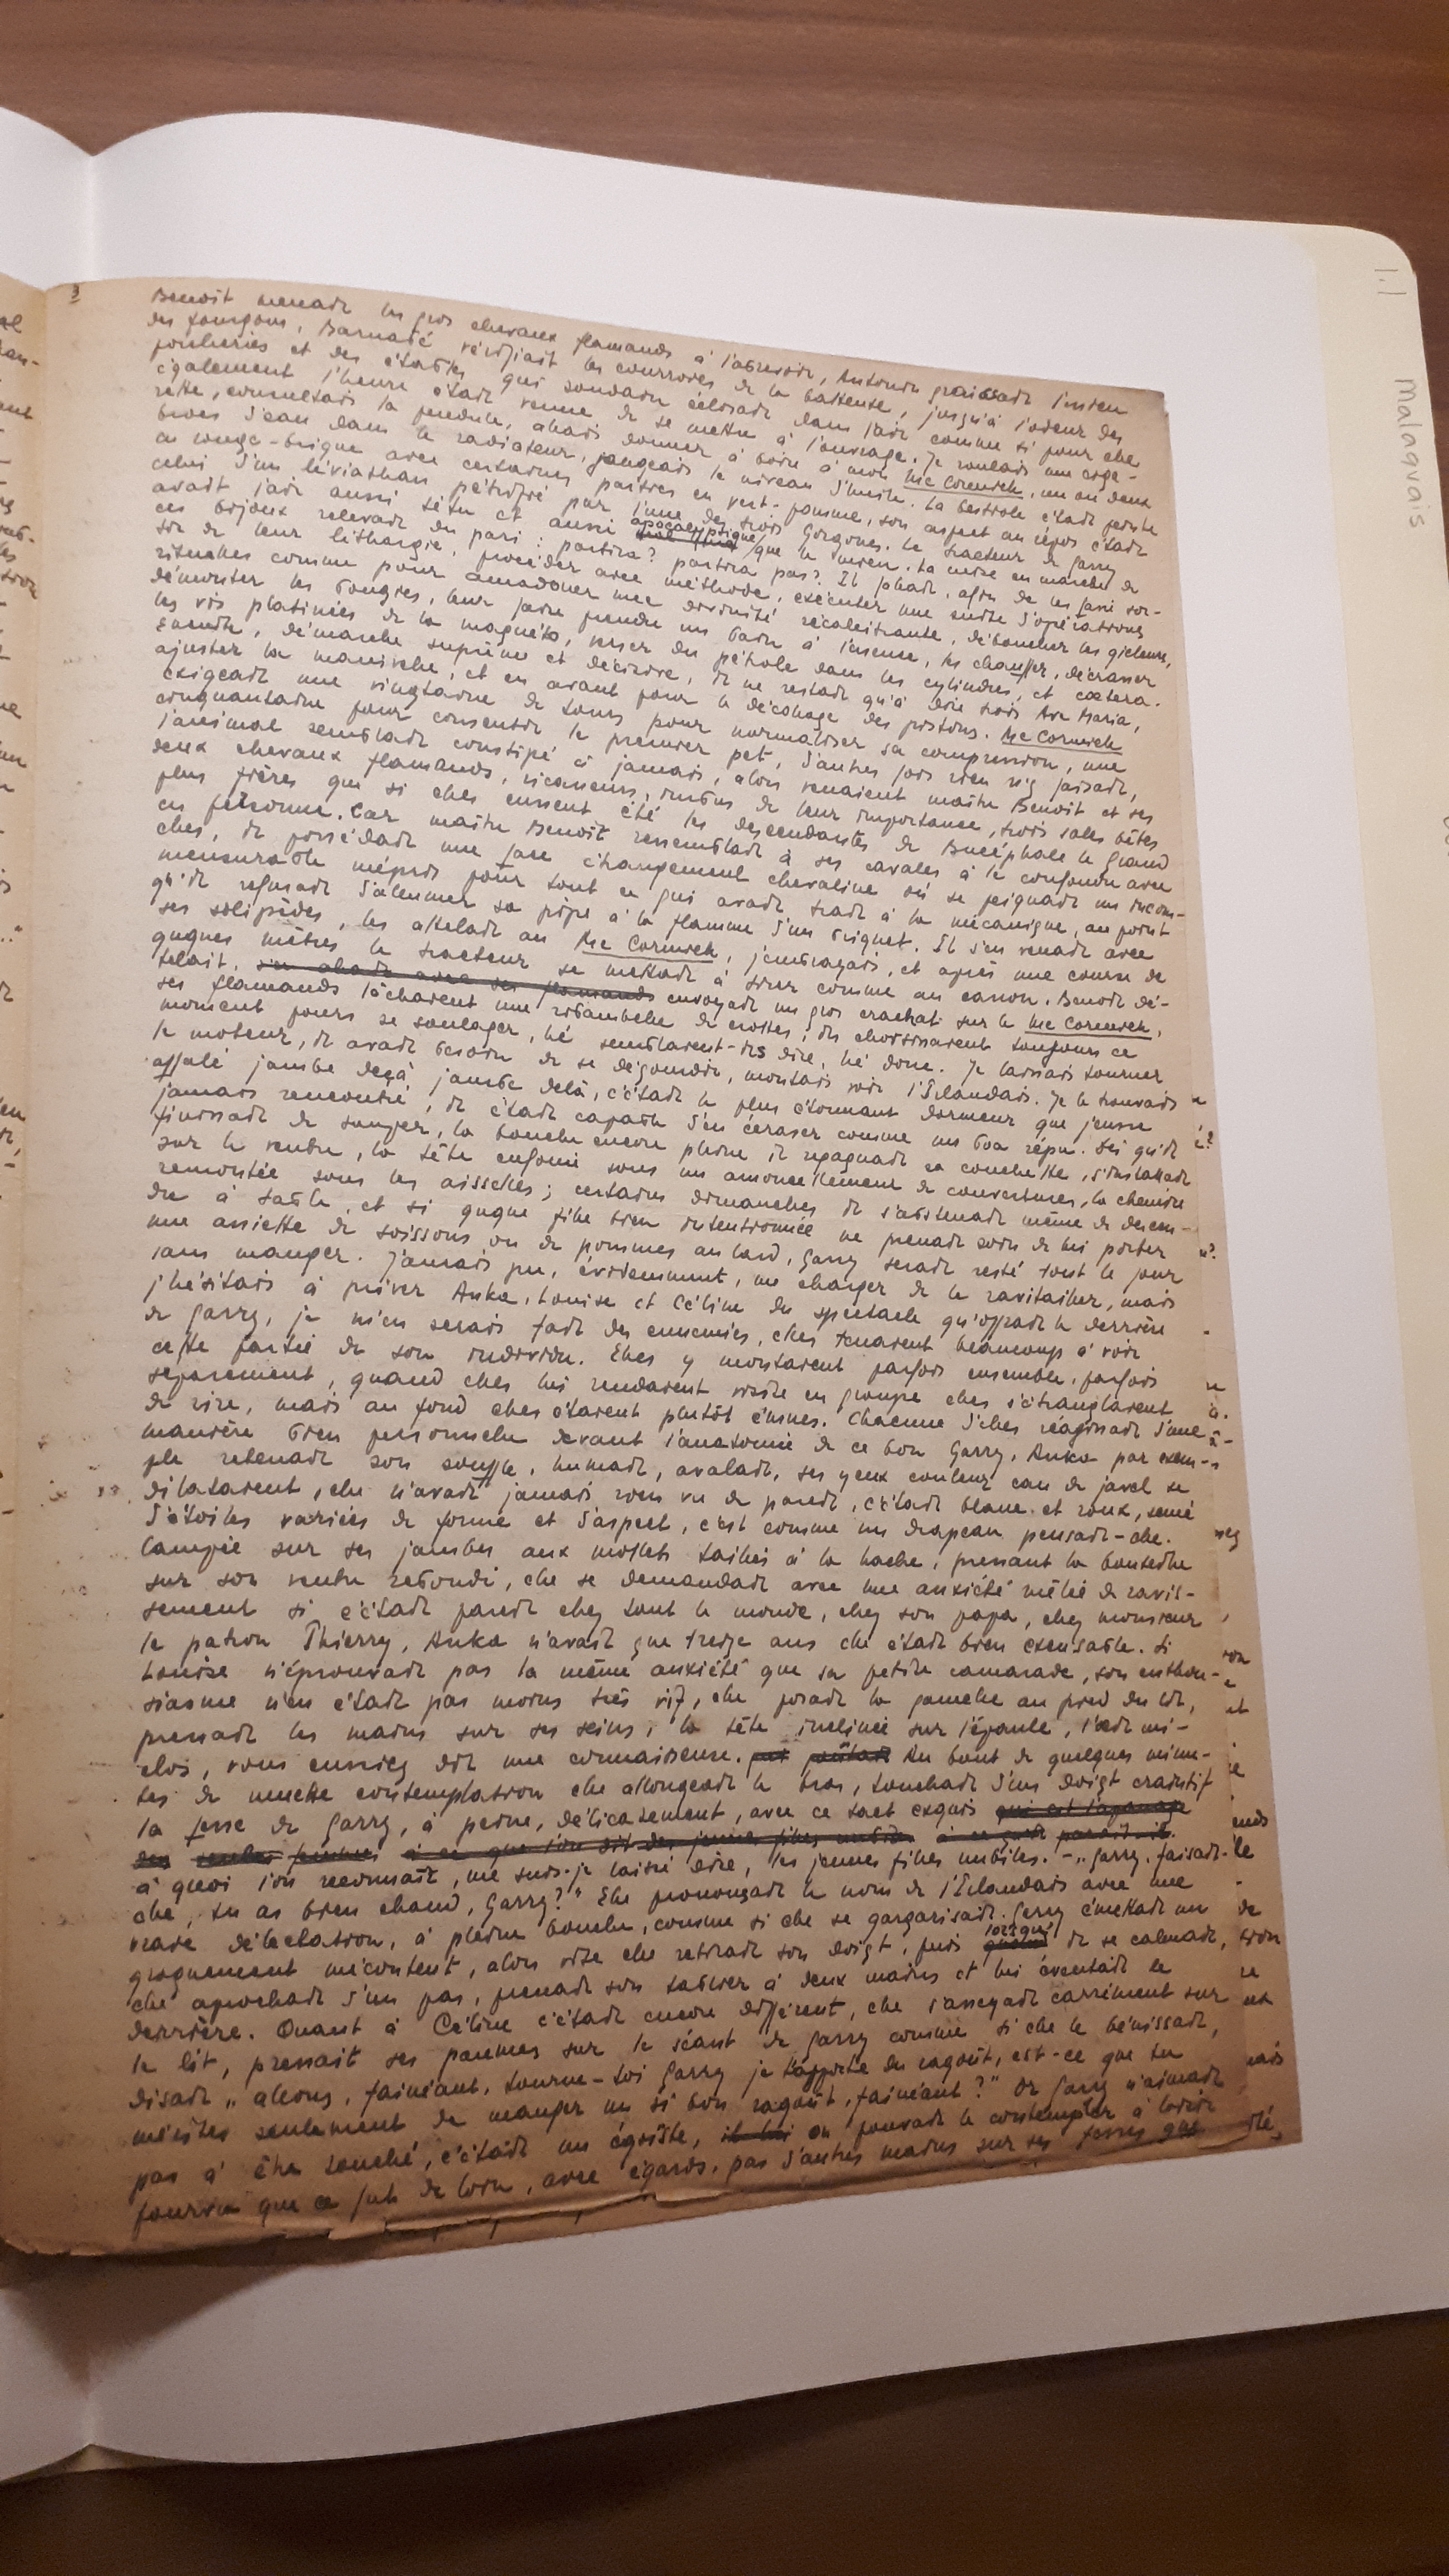 3
Benoît menait les gros chevaux flamands à l'abreuvoir, Antonin graissait l'essieu
des fourgons, Barnabé vérifiait les courroies de la batteuse, jusqu'à l'odeur des
porcheries et des étables qui soudain éclosait dans l'air comme si pour elle
également l'heure était venue de se mettre à l'ouvrage. Je roulais une ciga-
rette, consultais la pendule, allais donner à boire à mon Mc Cormick, un ou deux
brocs d'eau dans le radiateur, jaugeais le niveau d'huile. La bestiole était peinte
en rouge-brique avec certaines parties en vert-pomme, son aspect au repos était
celui d'un léviathan pétrifié par l'une des trois Gorgones. Le tracteur de Garry
avait l'air aussi têtu et aussi apocalyptique que le mien. La mise en marche de
ces bijoux relevait du pari: partira? partira pas? Il fallait, afin de les faire sor-
tir de leur léthargie, procéder avec méthode, exécuter une suite d'opérations
rituelles comme pour amadouer une divinité récalcitrante, déboucher les gicleurs,
démonter les bougies, leur faire prendre un bain à l'essence, les chauffer, décrasser
les vis platinées de la magnéto, verser du pétrole dans les cylindres, et cætera.
Ensuite, démarche suprême et décisive, il ne restait qu'à dire trois Ave Maria,
ajuster la manivelle, et en avant pour le décollage des pistons. Mc Cormick
exigeait une vingtaine de tours pour normaliser sa compression, une
cinquantaine pour consentir le premier pet, d'autres fois rien n'y faisait,
l'animal semblait constipé à jamais, alors venaient maître Benoît et ses
deux chevaux flamands, ricaneurs, imbus de leur importance, trois sales bêtes
plus fières que si elles eussent été les descendantes de Bucéphale le Grand
en personne. Car maître Benoît ressemblait à ses cavales à le confondre avec
elles, il possédait une face étrangement chevaline où se peignait un incom-
mensurable mépris pour tout ce qui avait trait à la mécanique, au point
qu'il refusait d'allumer sa pipe à la flamme d'un briquet. Il s'en venait avec
ses solipèdes, les attelait au Mc Cormick, j'embrayais, et après une course de
quques mètres le tracteur se mettait à tirer comme un canon. Benoît dé-
telait, s'en allait avec ses flamands envoyait un gros crachat sur le Mc Cormick,
ses flamands lâchaient une ribambelle de crottes, ils choisissaient toujours ce
moment pour se soulager, hé semblaient-ils dire, hé donc. Je laissais tourner
le moteur, il avait besoin de se dégourdir, montais voir l'Irlandais. Je le trouvais
affalé jambe deçà, jambe delà, c'était le plus étonnant dormeur que j'eusse
jamais rencontré, il était capable d'en écraser comme un boa répu. Dès qu'il
finissait de souper, la bouche encore pleine il regagnait sa couchette, s'installait
sur le ventre, la tête enfouie sous un amoncellement de couvertures, la chemise
remontée sous les aisselles; certains dimanches il s'abstenait même de descen-
dre à table, et si quque fille bien intentionnée ne prenait soin de lui porter
une assiette de soissons ou de pommes au lard, Garry serait resté tout le jour
sans manger. J'aurais pu, évidemment, me charger de le ravitailler, mais
j'hésitais à priver Anka, Louise et Céline du spectacle qu'offrait le derrière
de Garry, je m'en serais fait des ennemies, elles tenaient beaucoup à voir
cette partie de son individu. Elles y montaient parfois ensemble, parfois
séparément, quand elles lui rendaient visite en groupe elles s'étranglaient
de rire, mais au fond elles étaient plutôt émues. Chacune d'elles réagissait d'une
manière bien personnelle devant l'anatomie de ce bon Garry. Anka par exem-
ple retenait son souffle, humait, avalait, ses yeux couleur eau de javel se
dilataient, elle n'avait jamais rien vu de pareil, c'était blanc et roux, semé
d'étoiles variées de forme et d'aspect, c'est comme un drapeau pensait-elle.
Campée sur ses jambes aux mollets taillés à la hache, pressant la bouteille
sur son ventre rebondi, elle se demandait avec une anxiété mêlée de ravis-
sement si c'était pareil chez tout le monde, chez son papa, chez monsieur
le patron Thierry, Anka n'avait que treize ans elle était bien excusable. Si
Louise n'éprouvait pas la même anxiété que sa petite camarade, son enthou-
siasme n'en était pas moins très vif, elle posait la gamelle au pied du lit,
pressait les mains sur ses seins, la tête inclinée sur l'épaule, l'œil mi-
clos, vous eussiez dit une connaisseuse. Au bout de quelques minu-
tes de muette contemplation elle allongeait le bras, touchait d'un doigt craintif
la fesse de Garry, à peine, délicatement, avec ce tact exquis qui est l'apanage
des seules femmes à ce que l'on dit des jeunes filles nubiles à ce qu'il paraît-il.
à quoi l'on reconnaît, me suis-je laissé dire, les jeunes filles nubiles. - „Garry, faisait-
elle, tu as bien chaud, Garry?" Elle prononçait le nom de l'Irlandais avec une
vraie délectation, à pleine bouche, comme si elle se gargarisait. Garry émettait un
grognement mécontent, alors vite elle retirait son doigt, puis lorsqu' il se calmait,
elle aprochait d'un pas, prenait son tablier à deux mains et lui éventait le
derrière. Quant à Céline c'était encore différent, elle s'asseyait carrément sur
le lit, pressait ses paumes sur le séant de Garry comme si elle le bénissait,
disait „allons, fainéant, tourne-toi Garry je t'apporte du ragoût, est-ce que tu
mérites seulement de manger un si bon ragoût, fainéant?" Or Garry n'aimait
pas à être touché, c'était un égoïste, on pouvait le contempler à loisir
pourvu que ce fut de loin, avec égards, pas d'autres mains sur ses fesses que
malaquais